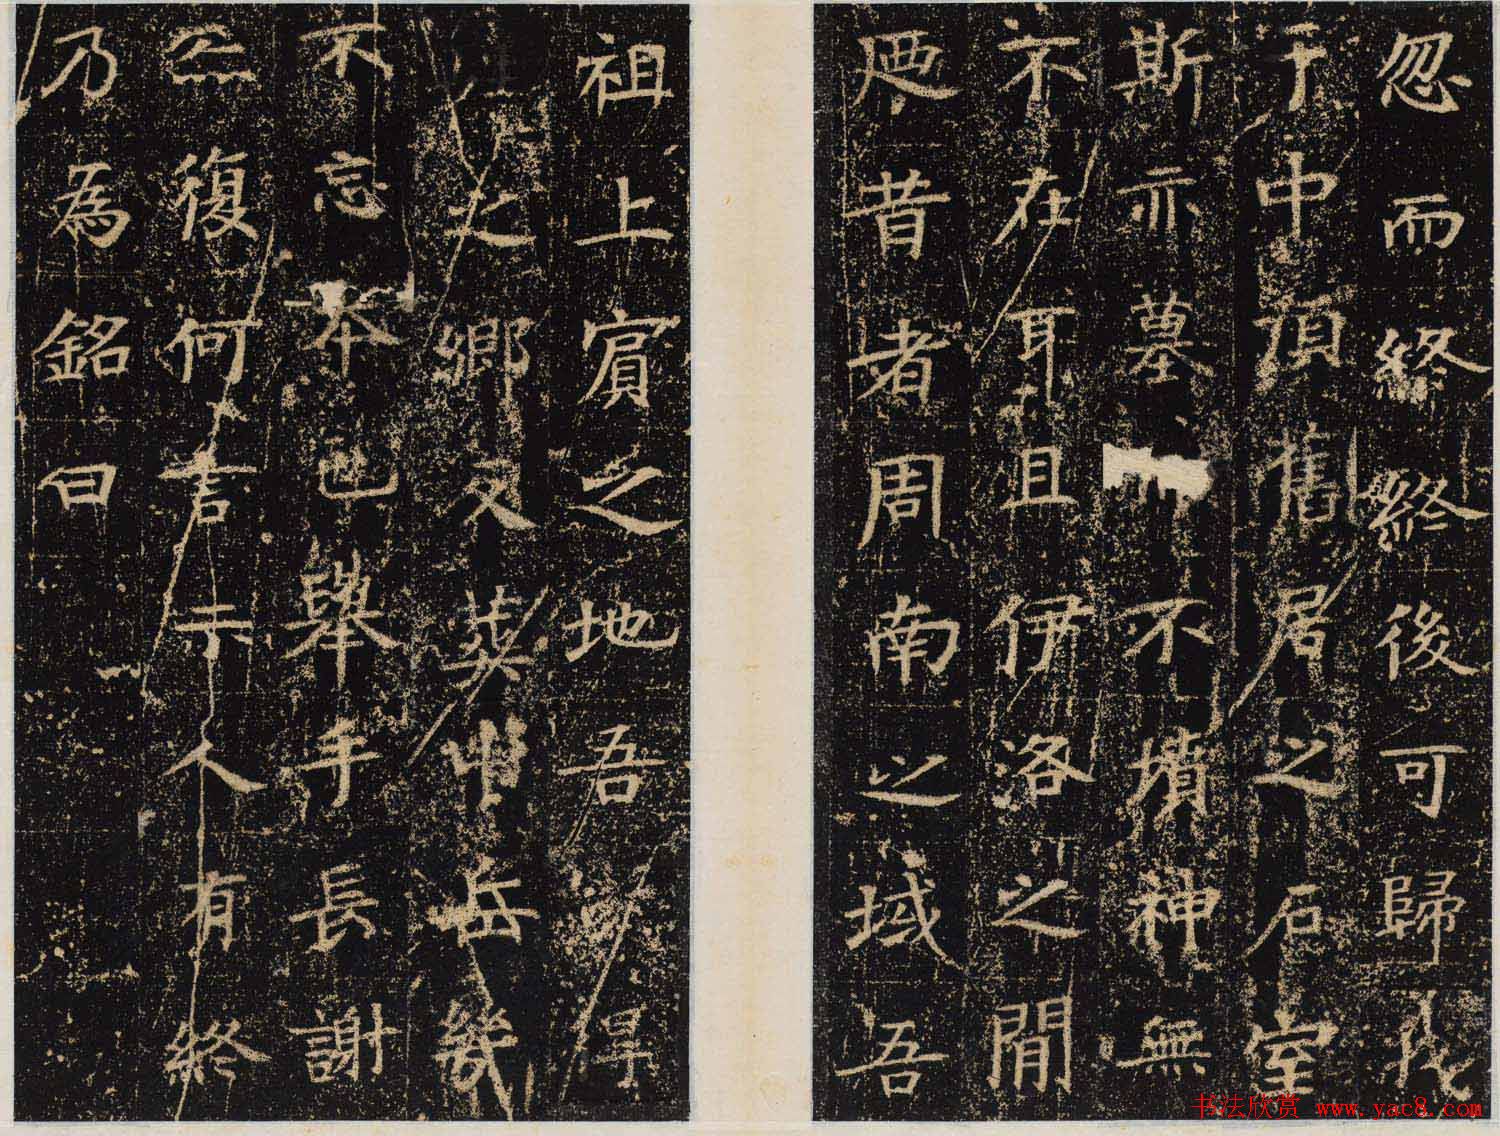 忽而終終後可歸我
于中頂舊居之石室
斯亦墓而不墳神無
不在耳且伊洛之間
迺昔者周南之域吾
祖上賓之地吾得
之鄉反葬中岳幾
不忘本也舉手長謝
亦復何言示人有終
乃為銘曰
书法欣赏 www.yac8.com